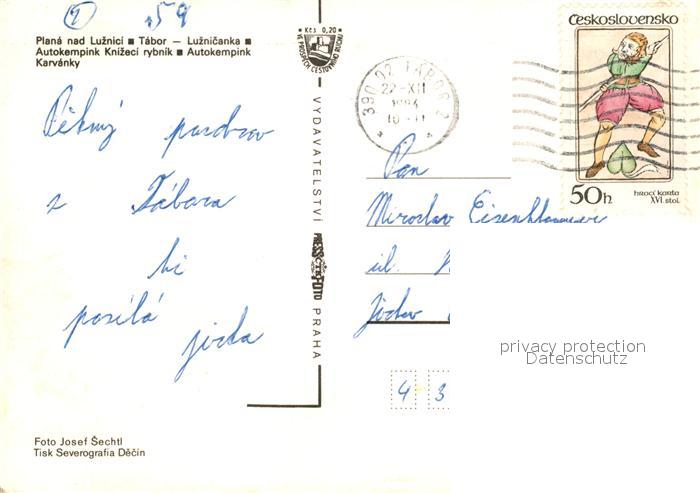 2 59
Planá nad Lužnicí ■ Tábor — Lužničanka ■
Autokempink Knížecí rybník ■ Autokempink
Karvánky
Pěkný pozdrav
z Tábora
ti
posílá
Foto Josef Šechtl
Tisk Severografia Děčín
Kčs 0,20
VE PROSPĚCH CESTOVNÍHO RUCHU
VYDAVATELSTVÍ PRESSFOTO PRAHA
390 02 TÁBOR 2
22.-XII
1984
Československo
50h
hrací karta
XVI. stol.
Pan
Miroslav Eisenhammer
ul.
4 3
privacy protection
Datenschutz